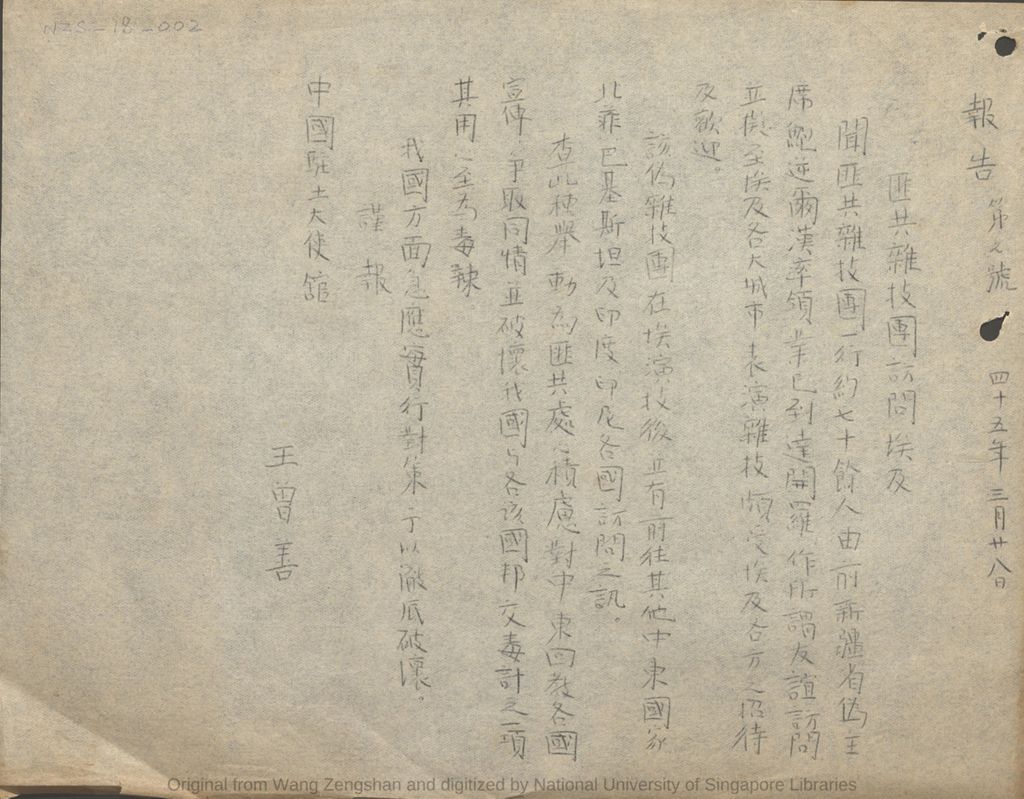 WZS-18-002
報告 第2號 四十五年三月廿八日
匪共雜技團訪問埃及
聞匪共雜技團一行約七十餘人由前新疆省偽主
席鮑逆爾漢率領業已到達開羅作所謂友誼訪問
並擬至埃及各大城市表演雜技頗受埃及各方之招待
及歡迎。
該偽雜技團在埃演技後並有前往其他中東國家
北菲巴基斯坦及印度印尼各國訪問之訊。
查此種舉動為匪共處心積慮對中東回教各國
宣傳爭取同情並破壞我國與各該國邦交毒計之一項
其用心至為毒辣
我國方面急應實行對策予以澈底破壞。
謹報
中國駐土大使館
王曾善
Original from Wang Zengshan and digitized by National University of Singapore Libraries